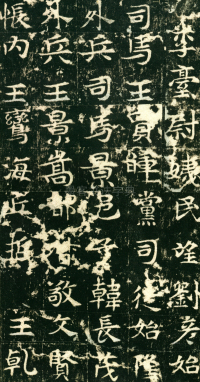 李臺尉民望劉彥始
司馬王貫暉黨司徒始隆
外兵司馬景邑子韓長茂
外兵王景嵩敬文賢
帳內王鸞海兵王乹